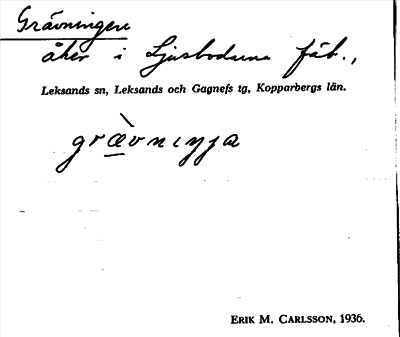 Grävningen
åker i Ljusbodarna fäb.,
Leksands sn, Leksands och Gagnefs tg, Kopparbergs län.
græ̀vnıŋŋa
ERIK M. CARLSSON, 1936.